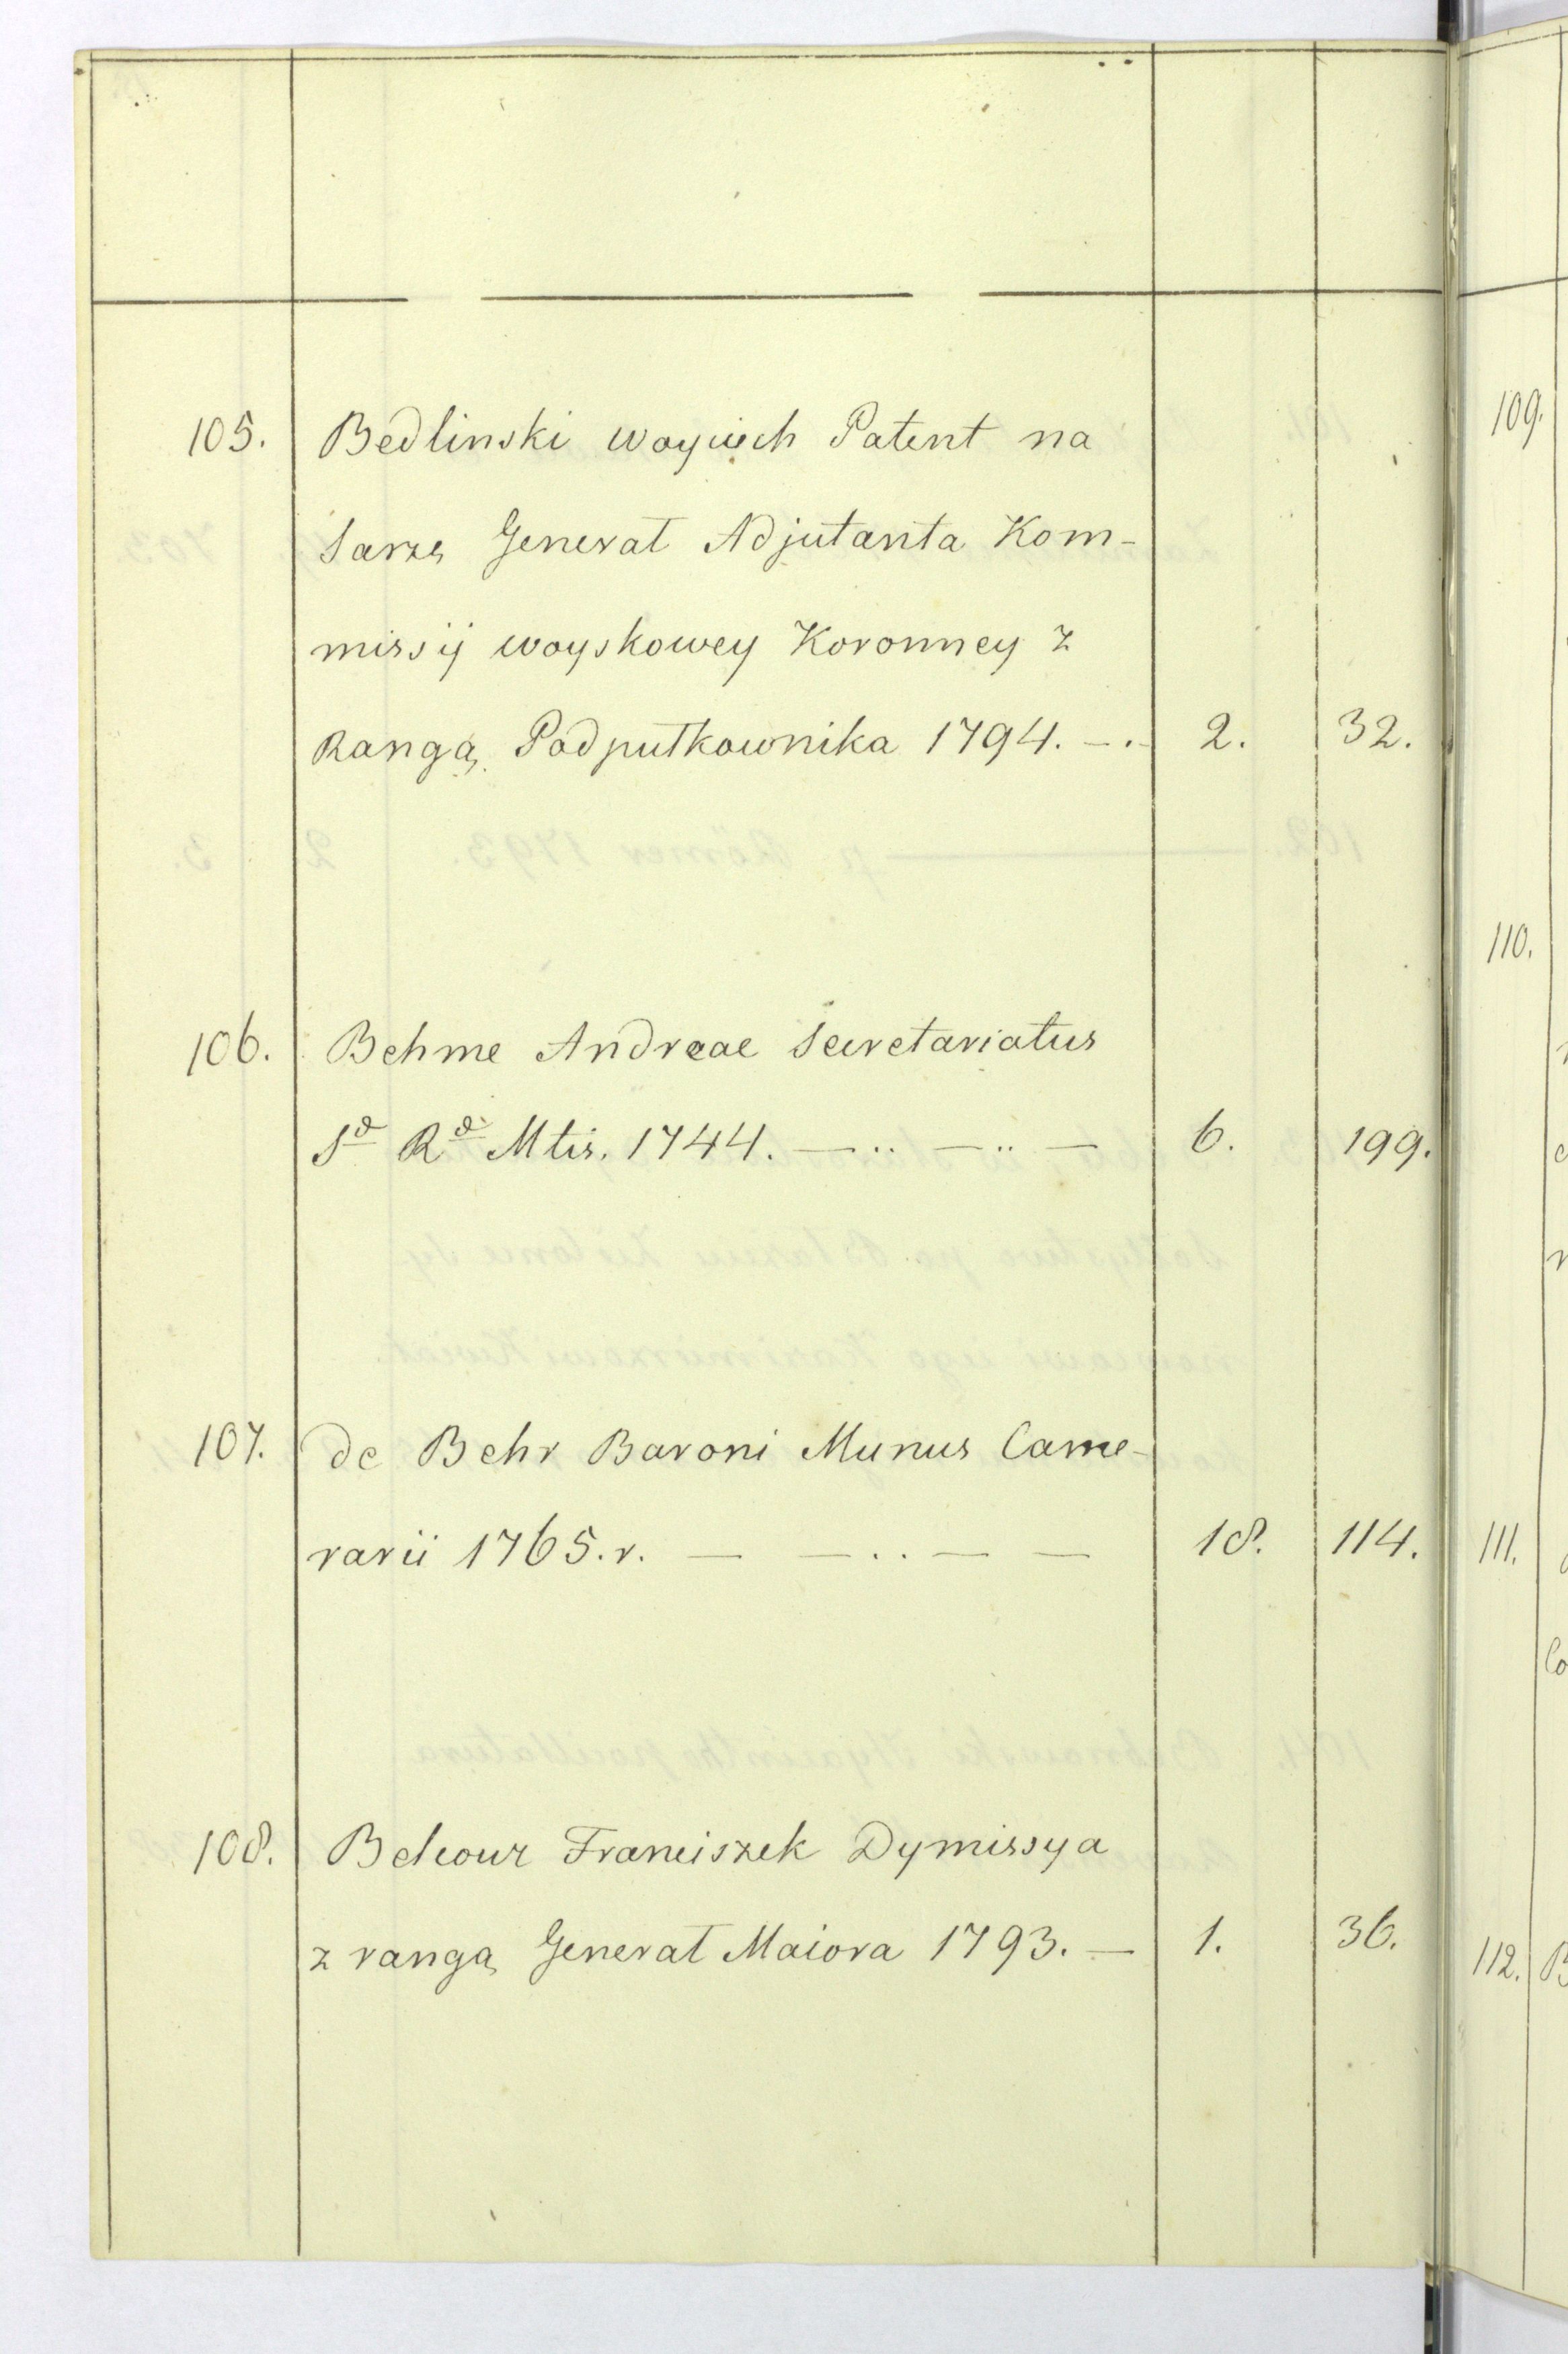 105. Bedlinski Woyciech Patent na
Sarżę Generał Adjutanta Kom-
missij woyskowey Koronney z
Rangą Podpułkownika 1794. —.- 2. 32.
106. Behme Andreae Secretariatus
Sæ Ræ Mtis. 1744. — .. — .. — 6. 199.
107. de Behr Baroni Munus Came-
rarii 1765. r. — — .. — — 18. 114.
108. Belcour Franciszek Dymissya
z rangą Generał Maiora 1793. — 1. 36.
109.
110.
111.
112.